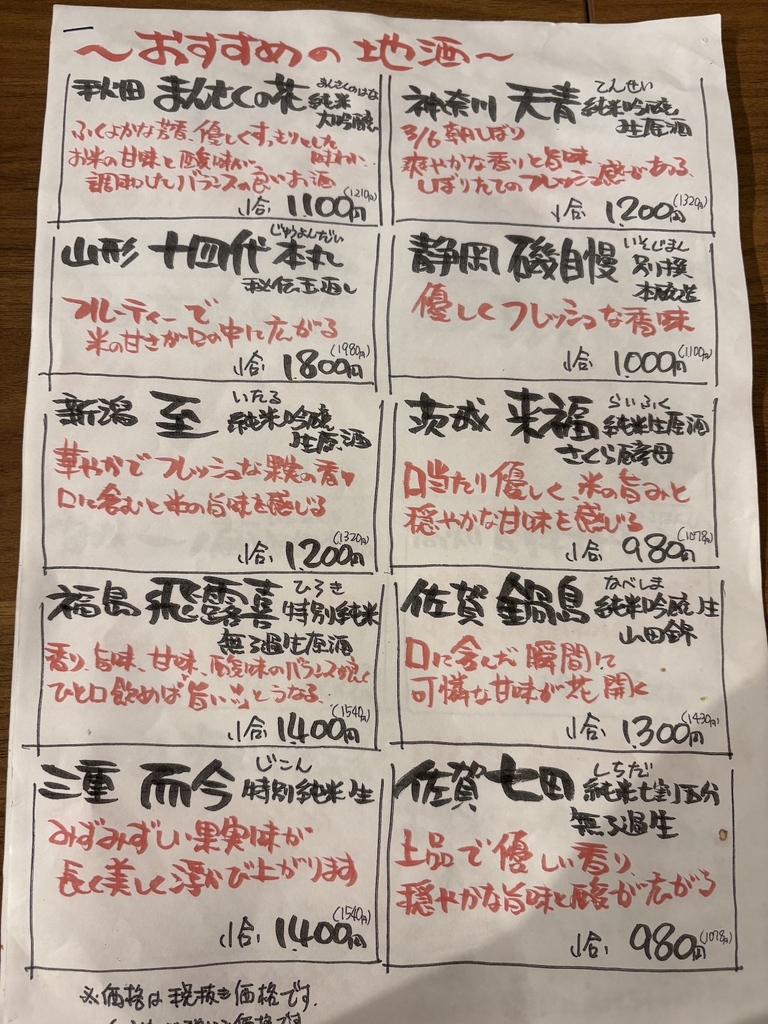 〜おすすめの地酒〜
秋田 まんさくの花 まんさくのはな 純米
大吟醸
ふくよかな芳香、優しくすっきりとした
味わい、
お米の甘味と酸味が、
調和したバランスの良いお酒
小合 1100円 (1210円)
神奈川 天青 てんせい 純米吟醸
生原酒
3/6 朝しぼり
爽やかな香りと旨味
しぼりたてのフレッシュ感がある
小合 1200円 (1320円)
山形 十四代 じゅうよんだい 本丸
秘伝玉返し
フルーティーで
米の甘さが口の中に広がる
小合 1800円 (1980円)
静岡 磯自慢 いそじまん 別撰
本醸造
優しくフレッシュな香味
小合 1000円 (1100円)
新潟 至 いたる 純米吟醸
生原酒
華やかでフレッシュな果実の香り
口に含むと米の旨味を感じる
小合 1200円 (1320円)
茨城 来福 らいふく 純米生原酒
さくら酵母
口当たり優しく、米の旨みと
穏やかな甘味を感じる
小合 980円 (1078円)
福島 飛露喜 ひろき 特別純米
無ろ過生原酒
香り、旨味、甘味、酸味のバランスが良く
ひと口飲めば“旨い”とうなる
小合 1400円 (1540円)
佐賀 鍋島 なべしま 純米吟醸生
山田錦
口に含んだ瞬間に
可憐な甘味が花開く
小合 1300円 (1430円)
三重 而今 じこん 特別純米生
みずみずしい果実味が
長く美しく浮かび上がります
小合 1400円 (1540円)
佐賀 七田 しちだ 純米七割五分
無ろ過生
上品で優しい香り
穏やかな旨味と酸が広がる
小合 980円 (1078円)
※価格は税抜き価格です。